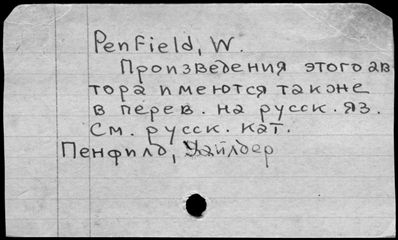 Penfield, W.
Произведения этого ав
тора имеются также
в перев. на русск. яз.
См. русск. кат.
Пенфилд, Уайлдер